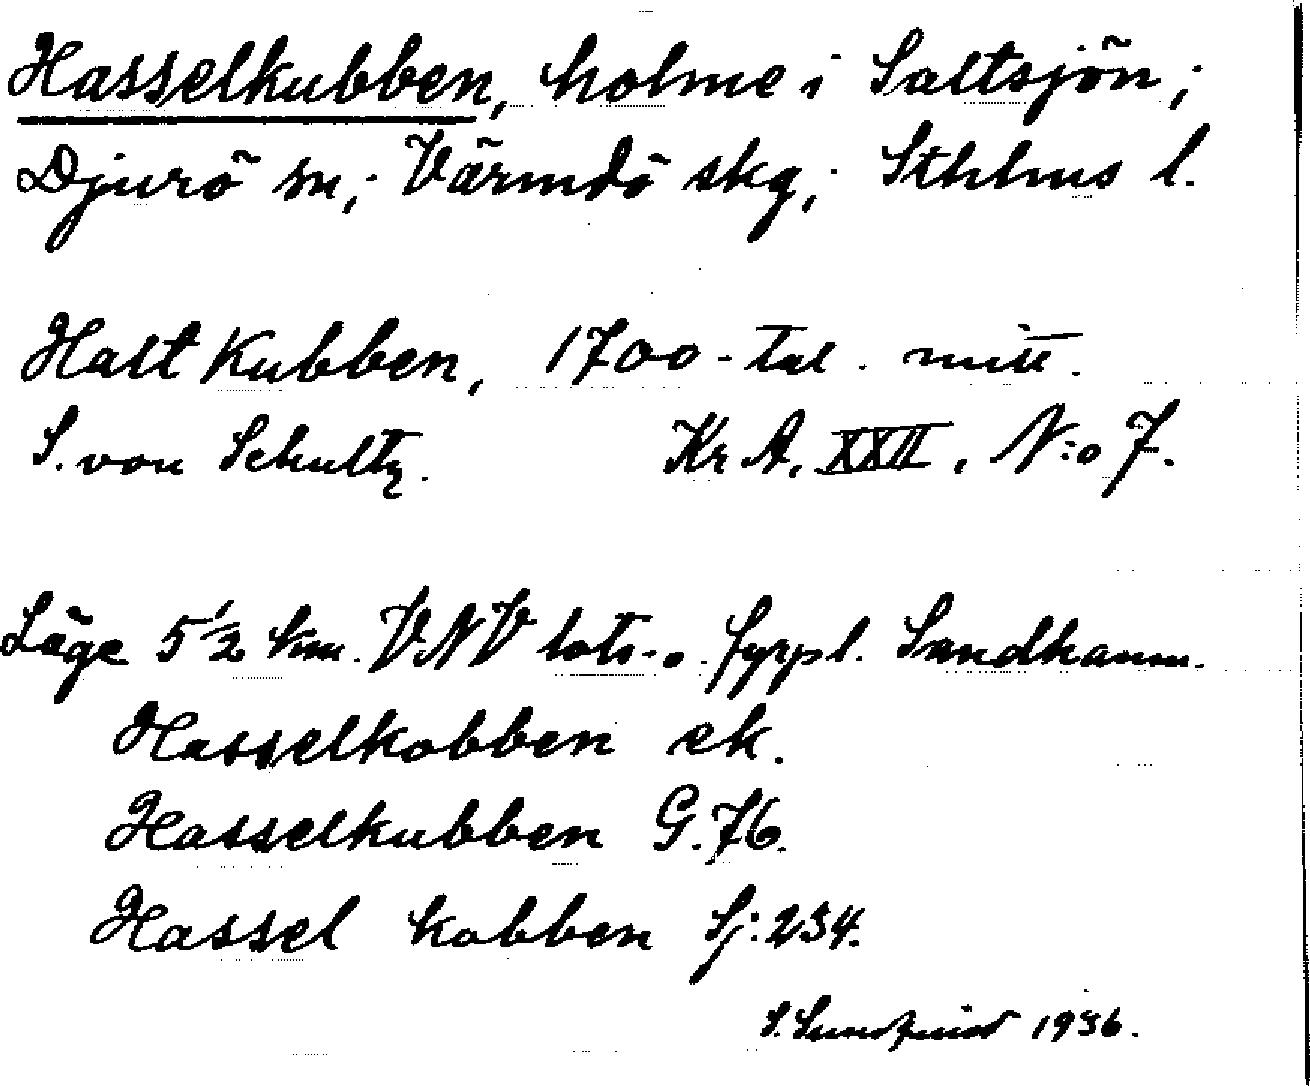 Hasselkubben, holme i Saltsjön;
Djurö sn; Värmdö skg; Sthlms l.
Halt Kubben, 1700-tal. mitt.
S. von Schultz. Kr A. XXII. N:o 7.
Läge 5 1/2 km. VNV lots- o. fyrpl. Sandhamn.
Hasselkobben ek.
Hasselkubben G.76.
Hassel kobben Sj:234.
S. Sundquist 1936.